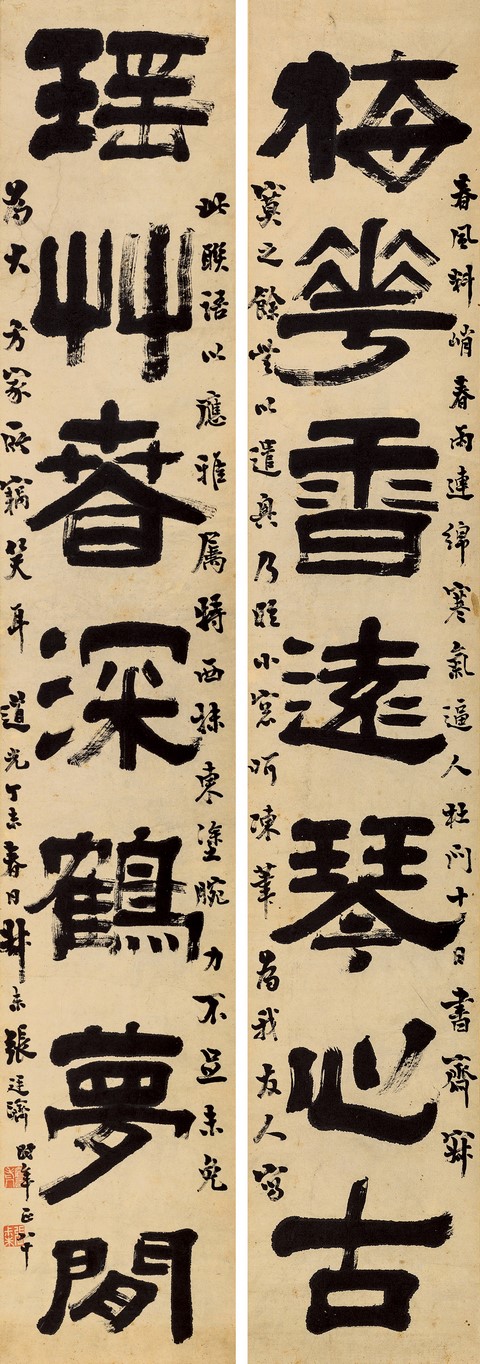 春風料峭春雨連綿寒氣逼人杜門十日書齋寂
梅華香遠琴心古
寞之餘無以遣興乃臨小窓呵凍筆為我友人寫
此聯語以應雅属特西抹東塗腕力不足未免
瑶艸春深鶴夢閒
為大方家所竊笑耳道光丁未春日叔未張廷濟時年正八十